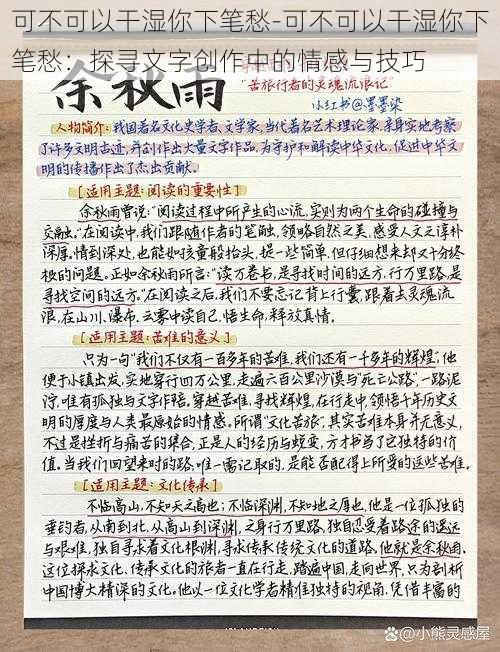 可不可以干湿你下笔愁-可不可以干湿你下
笔愁：探寻文字创作中的情感与技巧
余秋雨
"苦旅行者的灵魂流浪记"
小红书@墨墨染
人物简介：我国著名文化史学者、文学家，当代著名艺术理论家，亲身实地考察
了许多文明古迹，并创作出大量文学作品，为守护和解读中华文化，促进中华文
明的传播作出了杰出贡献。
[适用主题：阅读的重要性]
余秋雨曾说："阅读过程中所产生的心流，实则为两个生命的碰撞与
交融。"在阅读中，我们跟随作者的笔触，领略自然之美，感受人文之淳朴
深厚，情到深处，也能如孩童般抬头，提一些简单，但仔细想来却又十分终
极的问题。正如余秋雨所言："读万卷书，是寻找时间的远方，行万里路，是
寻找空间的远方。"在阅读之后，我们不要忘记背上行囊，跟着去灵魂流
浪，在山川、瀑布、云雾中读自己，悟生命，释放真情。
[适用主题：苦难的意义]
只为一句"我们不仅有一百多年的苦难，我们还有一千多年的辉煌"，他
便于小镇出发，实地穿行四万公里，走遍六百公里沙漠与"死亡公路"，一路泥
泞，唯有孤独与文字作陪。穿越苦难，寻找辉煌，在行走中，领悟千年历史文
明的厚度与人类最原始的情感。所谓"文化苦旅"，其实苦难本身并无意义，
不过是挫折与痛苦的集合，正是人的经历与蜕变，方才书写了它独特的价
值。当我们回望来时的路，唯一需记取的，是能否配得上所受的这些苦难。
[适用主题：文化传承]
不临高山，不知天之高也；不临深渊，不知地之厚也，他是一位孤独的
垂钓者，从南到北，从高山到深渊，只身行万里路，独自忍受着路途的遥远
与艰难，独自寻求着文化根渊，寻求传承传统文化的道路。他就是余秋雨。
这位探求文化、传承文化的旅者一直在行走，踏遍中国，走向世界，只为剖析
中国博大精深的文化。他以一位文化学者精准独特的视角，凭借丰富的
@小熊灵感屋